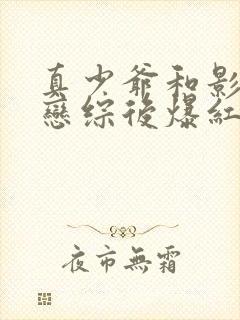 真少爺和影
戀綜後爆紅
夜市無霜